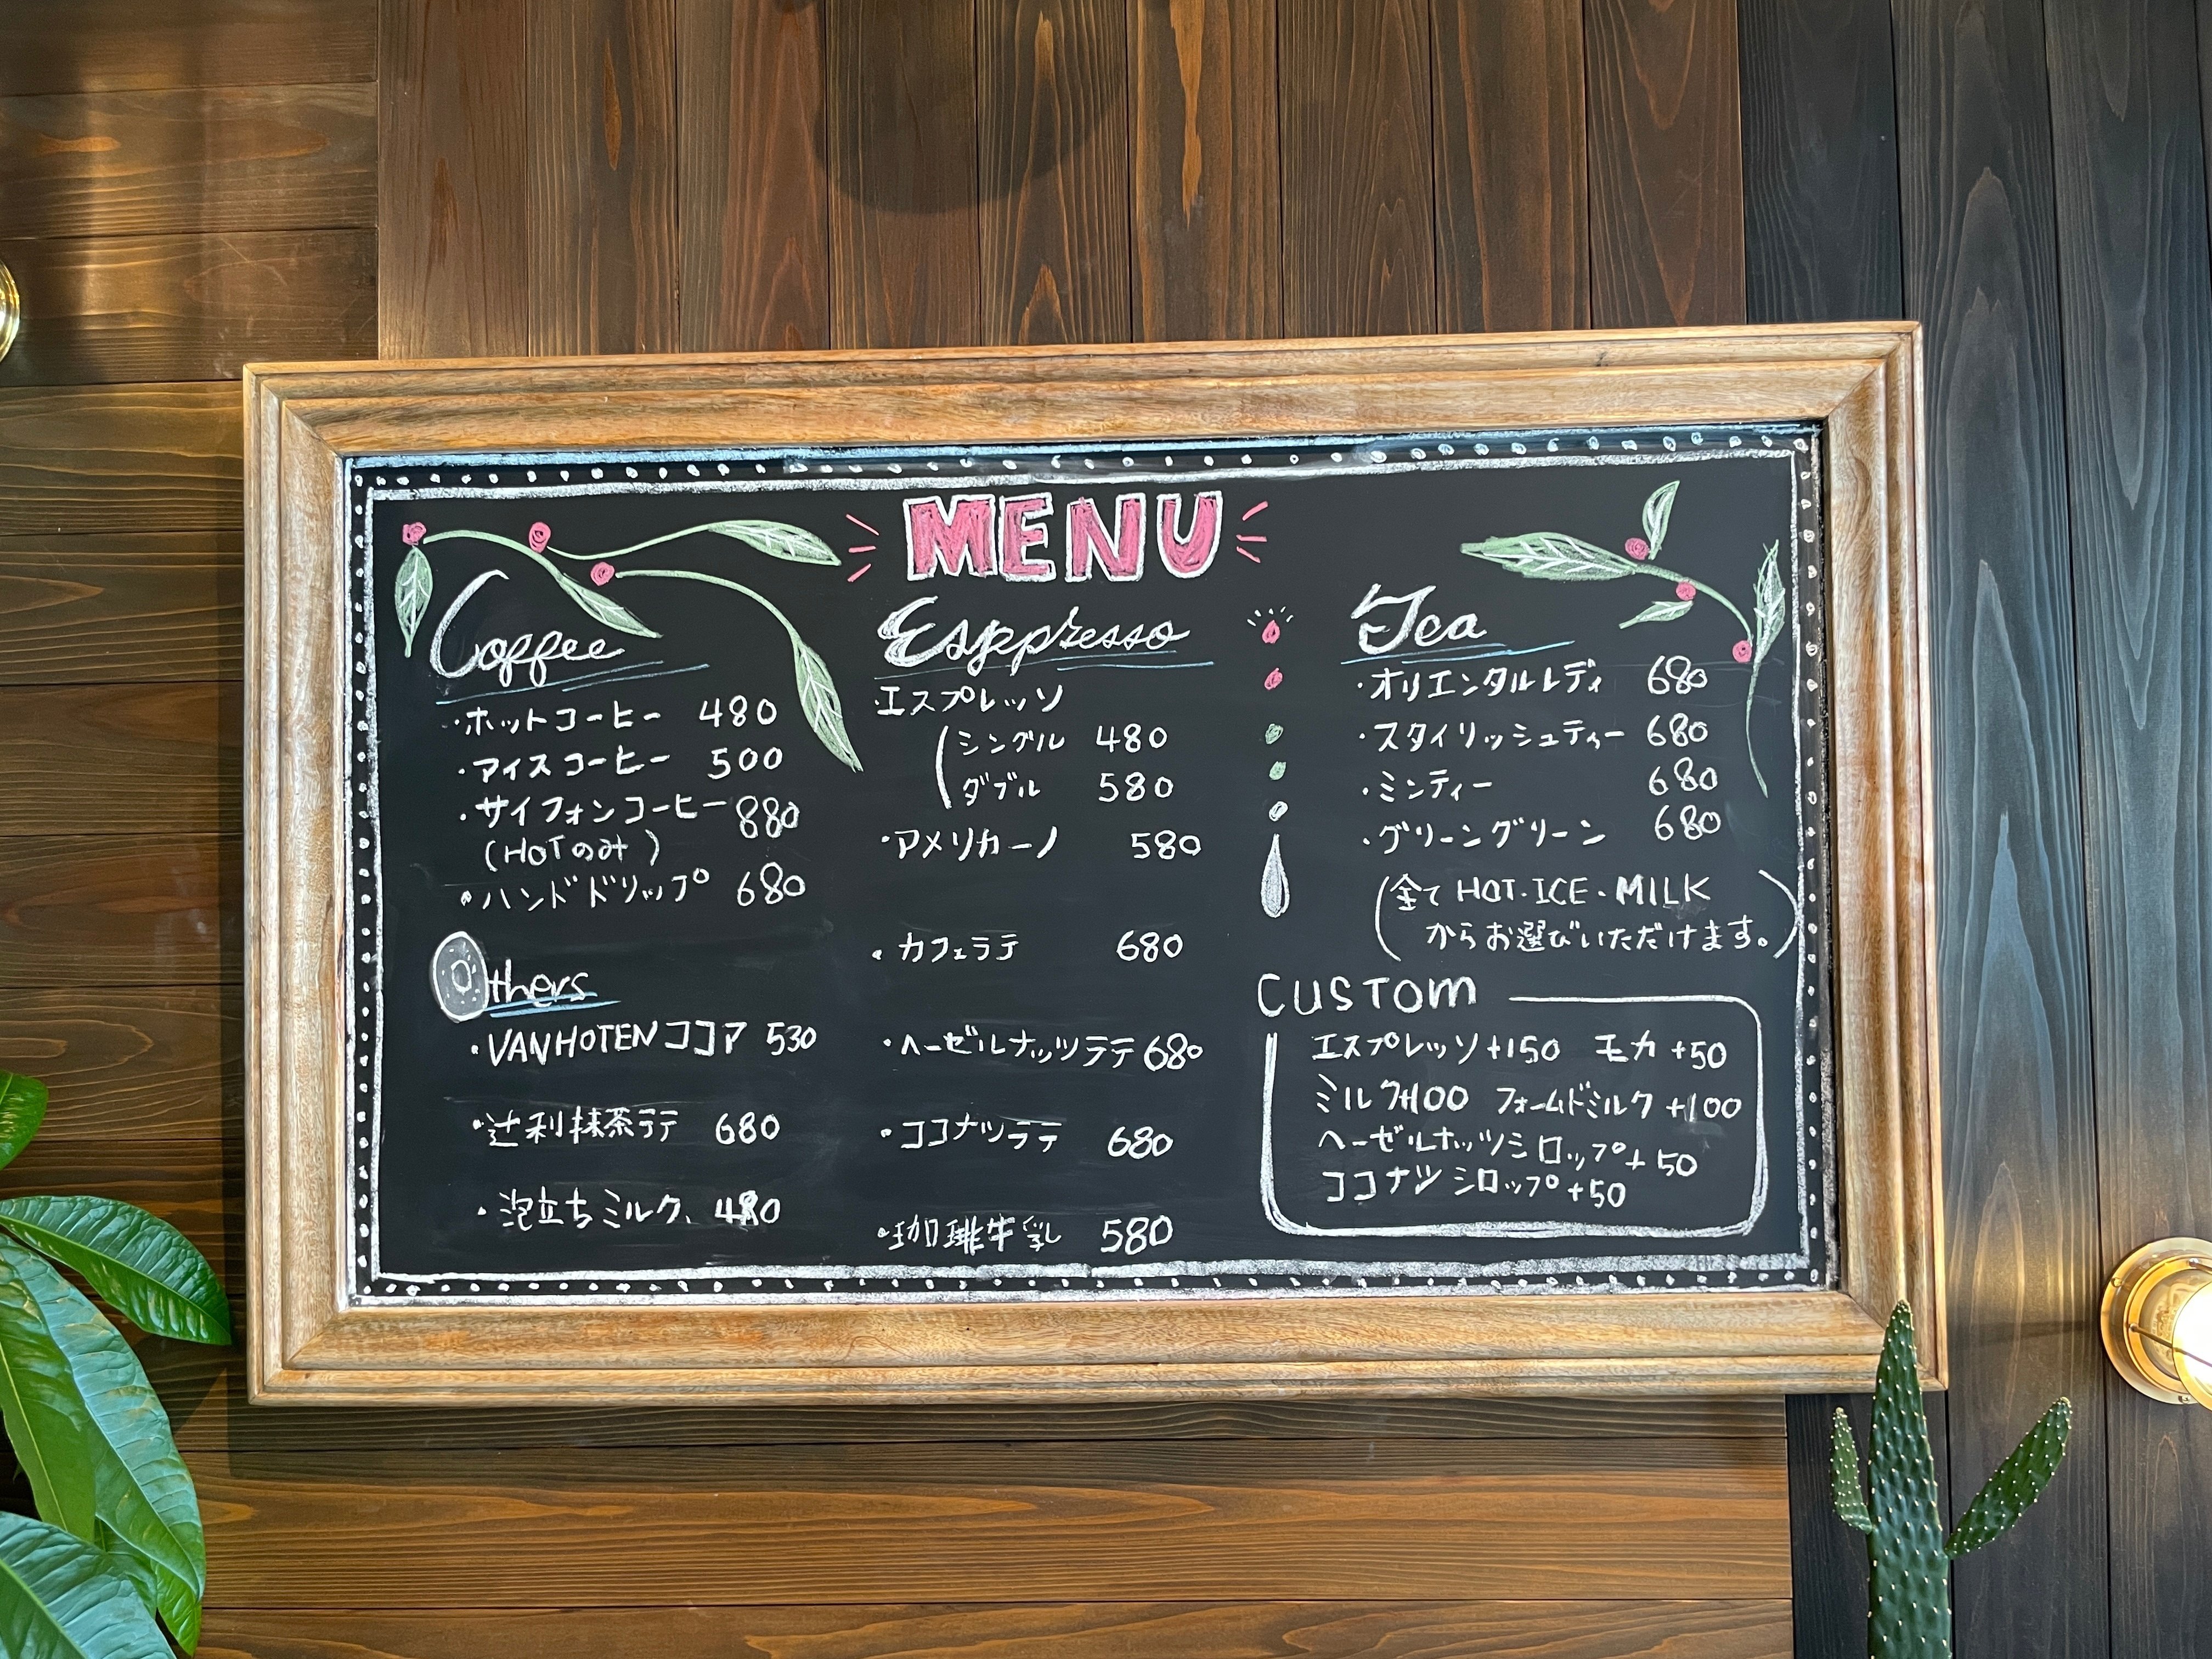 MENU
Coffee
・ホットコーヒー 480
・アイスコーヒー 500
・サイフォンコーヒー 880
(HOTのみ)
・ハンドドリップ 680
Others
・VANHOTENココア 530
・辻利抹茶ラテ 680
・泡立ちミルク、480
Esppresso
・エスプレッソ
シングル 480
ダブル 580
・アメリカーノ 580
・カフェラテ 680
・ヘーゼルナッツラテ 680
・ココナツラテ 680
・珈琲牛乳 580
Tea
・オリエンタルレディ 680
・スタイリッシュティー 680
・ミンティー 680
・グリーングリーン 680
(全てHOT・ICE・MILK
からお選びいただけます。)
CUSTOM
エスプレッソ+150 モカ+50
ミルク+100 フォームドミルク+100
ヘーゼルナッツシロップ+50
ココナツシロップ+50